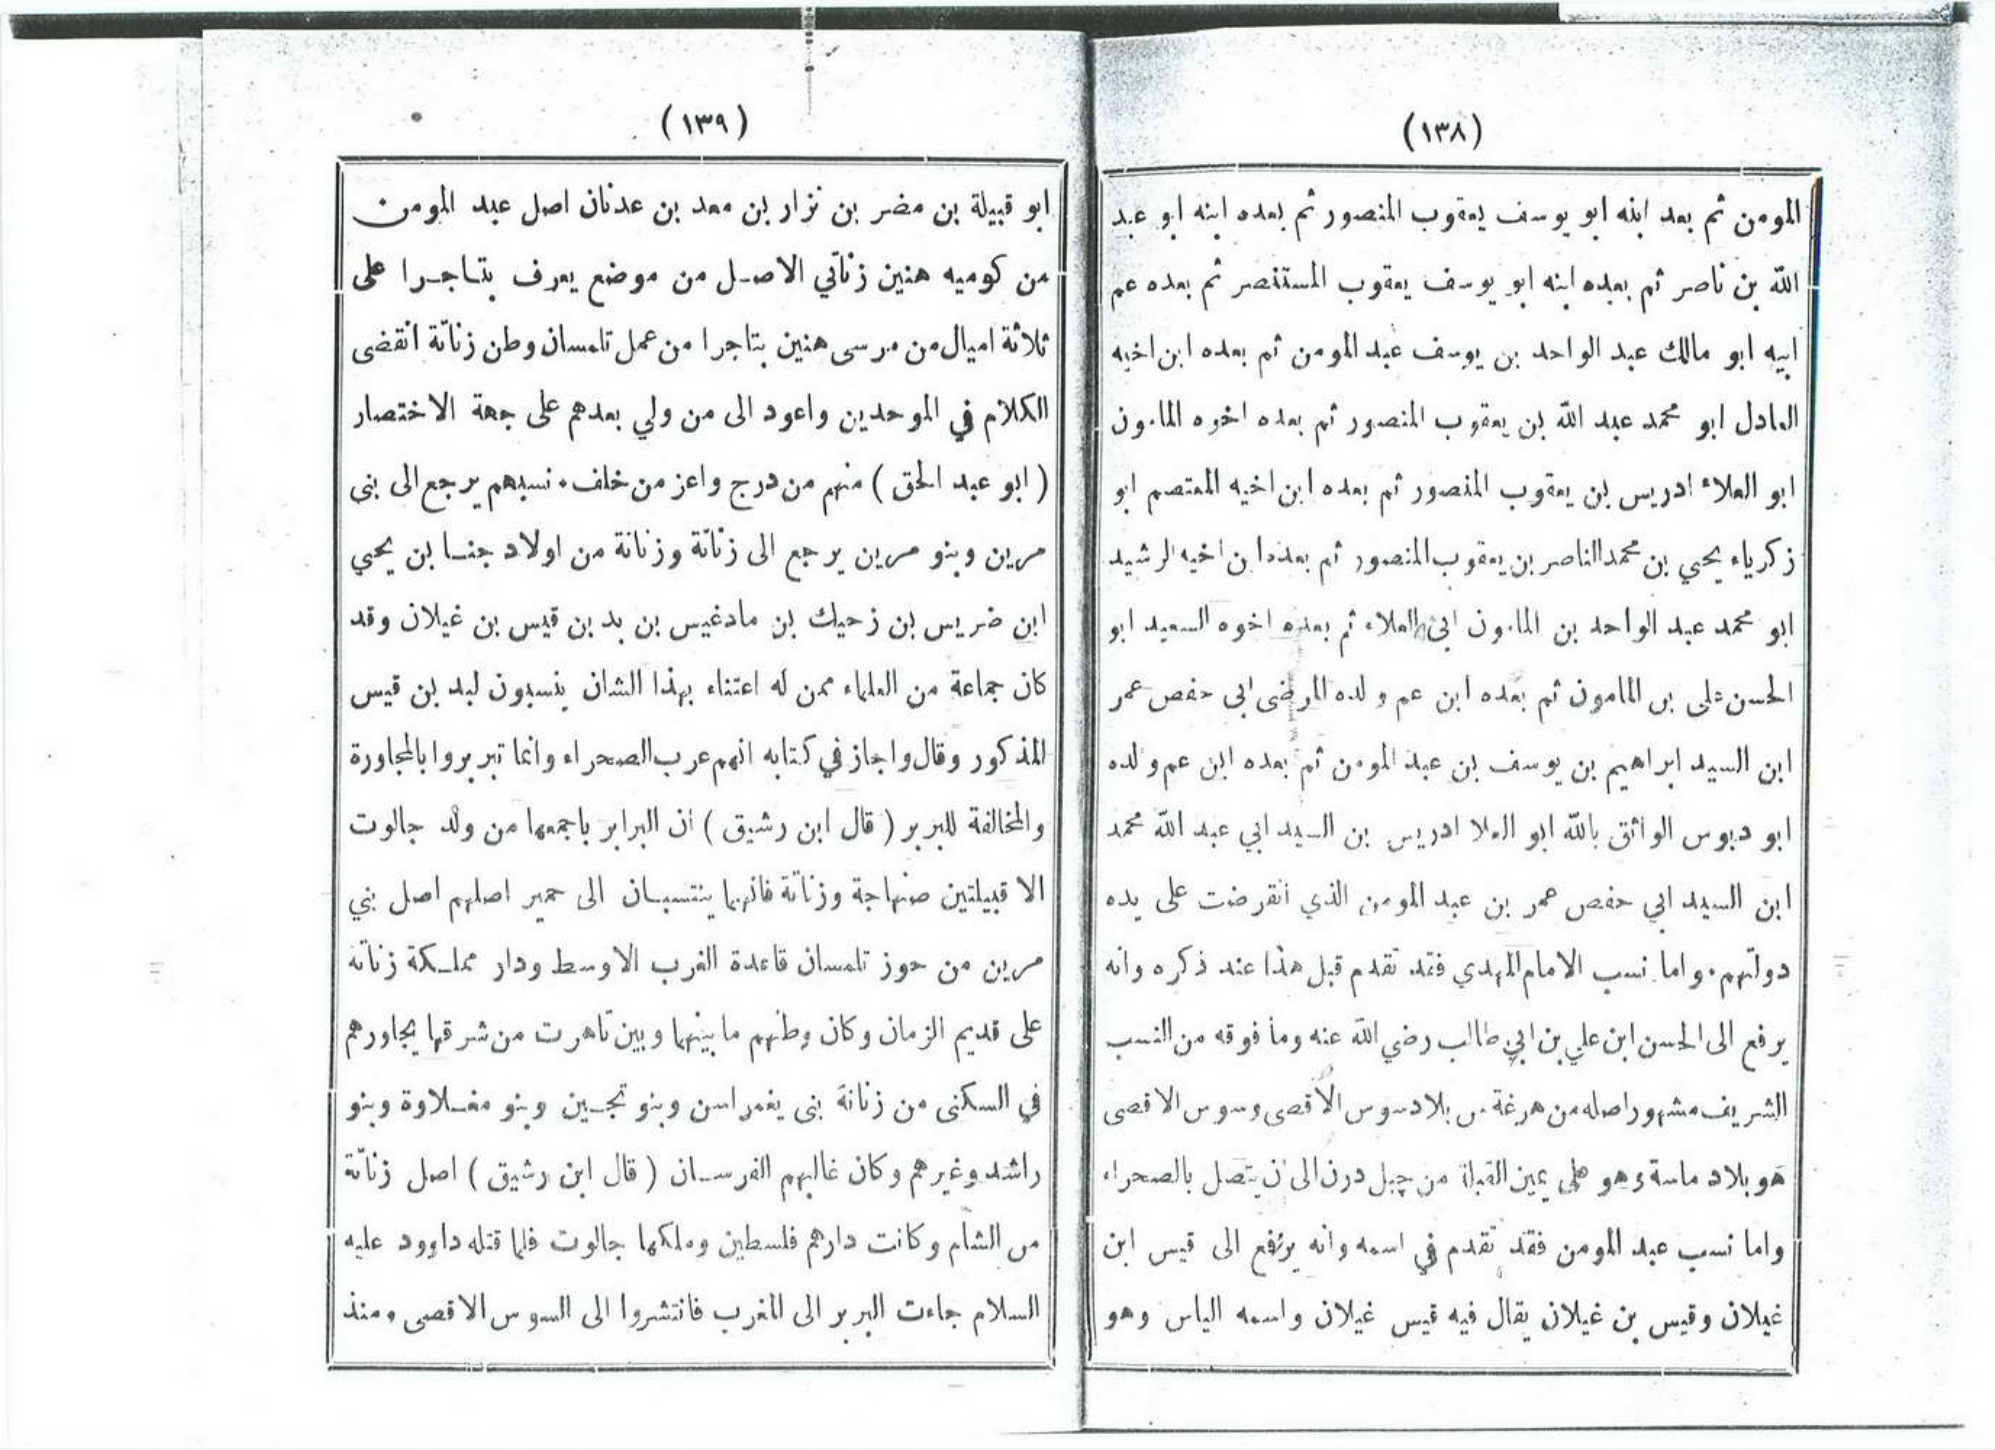 (١٣٨)
المومن ثم بعد ابنه ابو يوسف يعقوب المنصور ثم بعده ابنه ابو عبد
الله بن ناصر ثم بعده ابنه ابو يوسف يعقوب المستنصر ثم بعده عم
ابيه ابو مالك عبد الواحد بن يوسف عبد المومن ثم بعده ابن اخيه
العادل ابو محمد عبد الله بن يعقوب المنصور ثم بعده اخوه المامون
ابو العلاء ادريس بن يعقوب المنصور ثم بعده ابن اخيه المعتصم ابو
زكرياء يحيي بن محمد الناصر بن يعقوب المنصور ثم بعده ابن اخيه الرشيد
ابو محمد عبد الواحد بن المامون ابي العلاء ثم بعده اخوه السعيد ابو
الحسن على بن المامون ثم بعده ابن عم ولده المرضى ابى حفص عمر
ابن السيد ابراهيم بن يوسف بن عبد المومن ثم بعده ابن عم ولده
ابو دبوس الواثق بالله ابو العلا ادريس بن السيد ابي عبد الله محمد
ابن السيد ابي حفص عمر بن عبد المومن الذي انقرضت على يده
دولتهم٠ واما نسب الامام المهدي فقد تقدم قبل هذا عند ذكره وانه
يرفع الى الحسن ابن علي بن ابي طالب رضي الله عنه وما فوقه من النسب
الشريف مشهور اصله من هرغة من بلاد سوس الاقصى وسوس الاقصى
هو بلاد ماسة وهو على يمين القبلة من جبل درن الى ان يتصل بالصحراء
واما نسب عبد المومن فقد تقدم في اسمه وانه يرفع الى قيس ابن
غيلان وقيس بن غيلان يقال فيه قيس غيلان واسمه الياس وهو
(١٣٩)
ابو قبيلة بن مضر بن نزار بن معد بن عدنان اصل عبد المومن
من كوميه هنين زناتي الاصل من موضع يعرف بتاجرا على
ثلاثة اميال من مرسى هنين بتاجرا من عمل تلمسان وطن زناتة انقضى
الكلام في الموحدين واعود الى من ولي بعدهم على جهة الاختصار
( ابو عبد الحق ) منهم من درج واعز من خلف٠ نسبهم يرجع الى بنى
مرين وبنو مرين يرجع الى زناتة وزناتة من اولاد جنا بن يحيي
ابن ضريس بن زحيك بن مادغيس بن بد بن قيس بن غيلان وقد
كان جماعة من العلماء ممن له اعتناء بهذا الشان ينسبون لبد بن قيس
المذكور وقال واجاز في كتابه انهم عرب الصحراء وانما تبربروا بالمجاورة
والمخالفة للبربر ( قال ابن رشيق ) ان البرابر باجمعها من ولد جالوت
الا قبيلتين صنهاجة وزناتة فانهما ينتسبان الى حمير اصلهم اصل بني
مرين من حوز تلمسان قاعدة الغرب الاوسط ودار مملكة زناتة
على قديم الزمان وكان وطنهم ما بينهما وبين تاهرت من شرقها يجاورهم
في السكنى من زناتة بنى يغمراسن وبنو تجين وبنو مغلاوة وبنو
راشد وغيرهم وكان غالبهم الفرسان ( قال ابن رشيق ) اصل زناتة
من الشام وكانت دارهم فلسطين وملكها جالوت فلما قتله داوود عليه
السلام جاءت البربر الى المغرب فانتشروا الى السوس الاقصى ومنذ